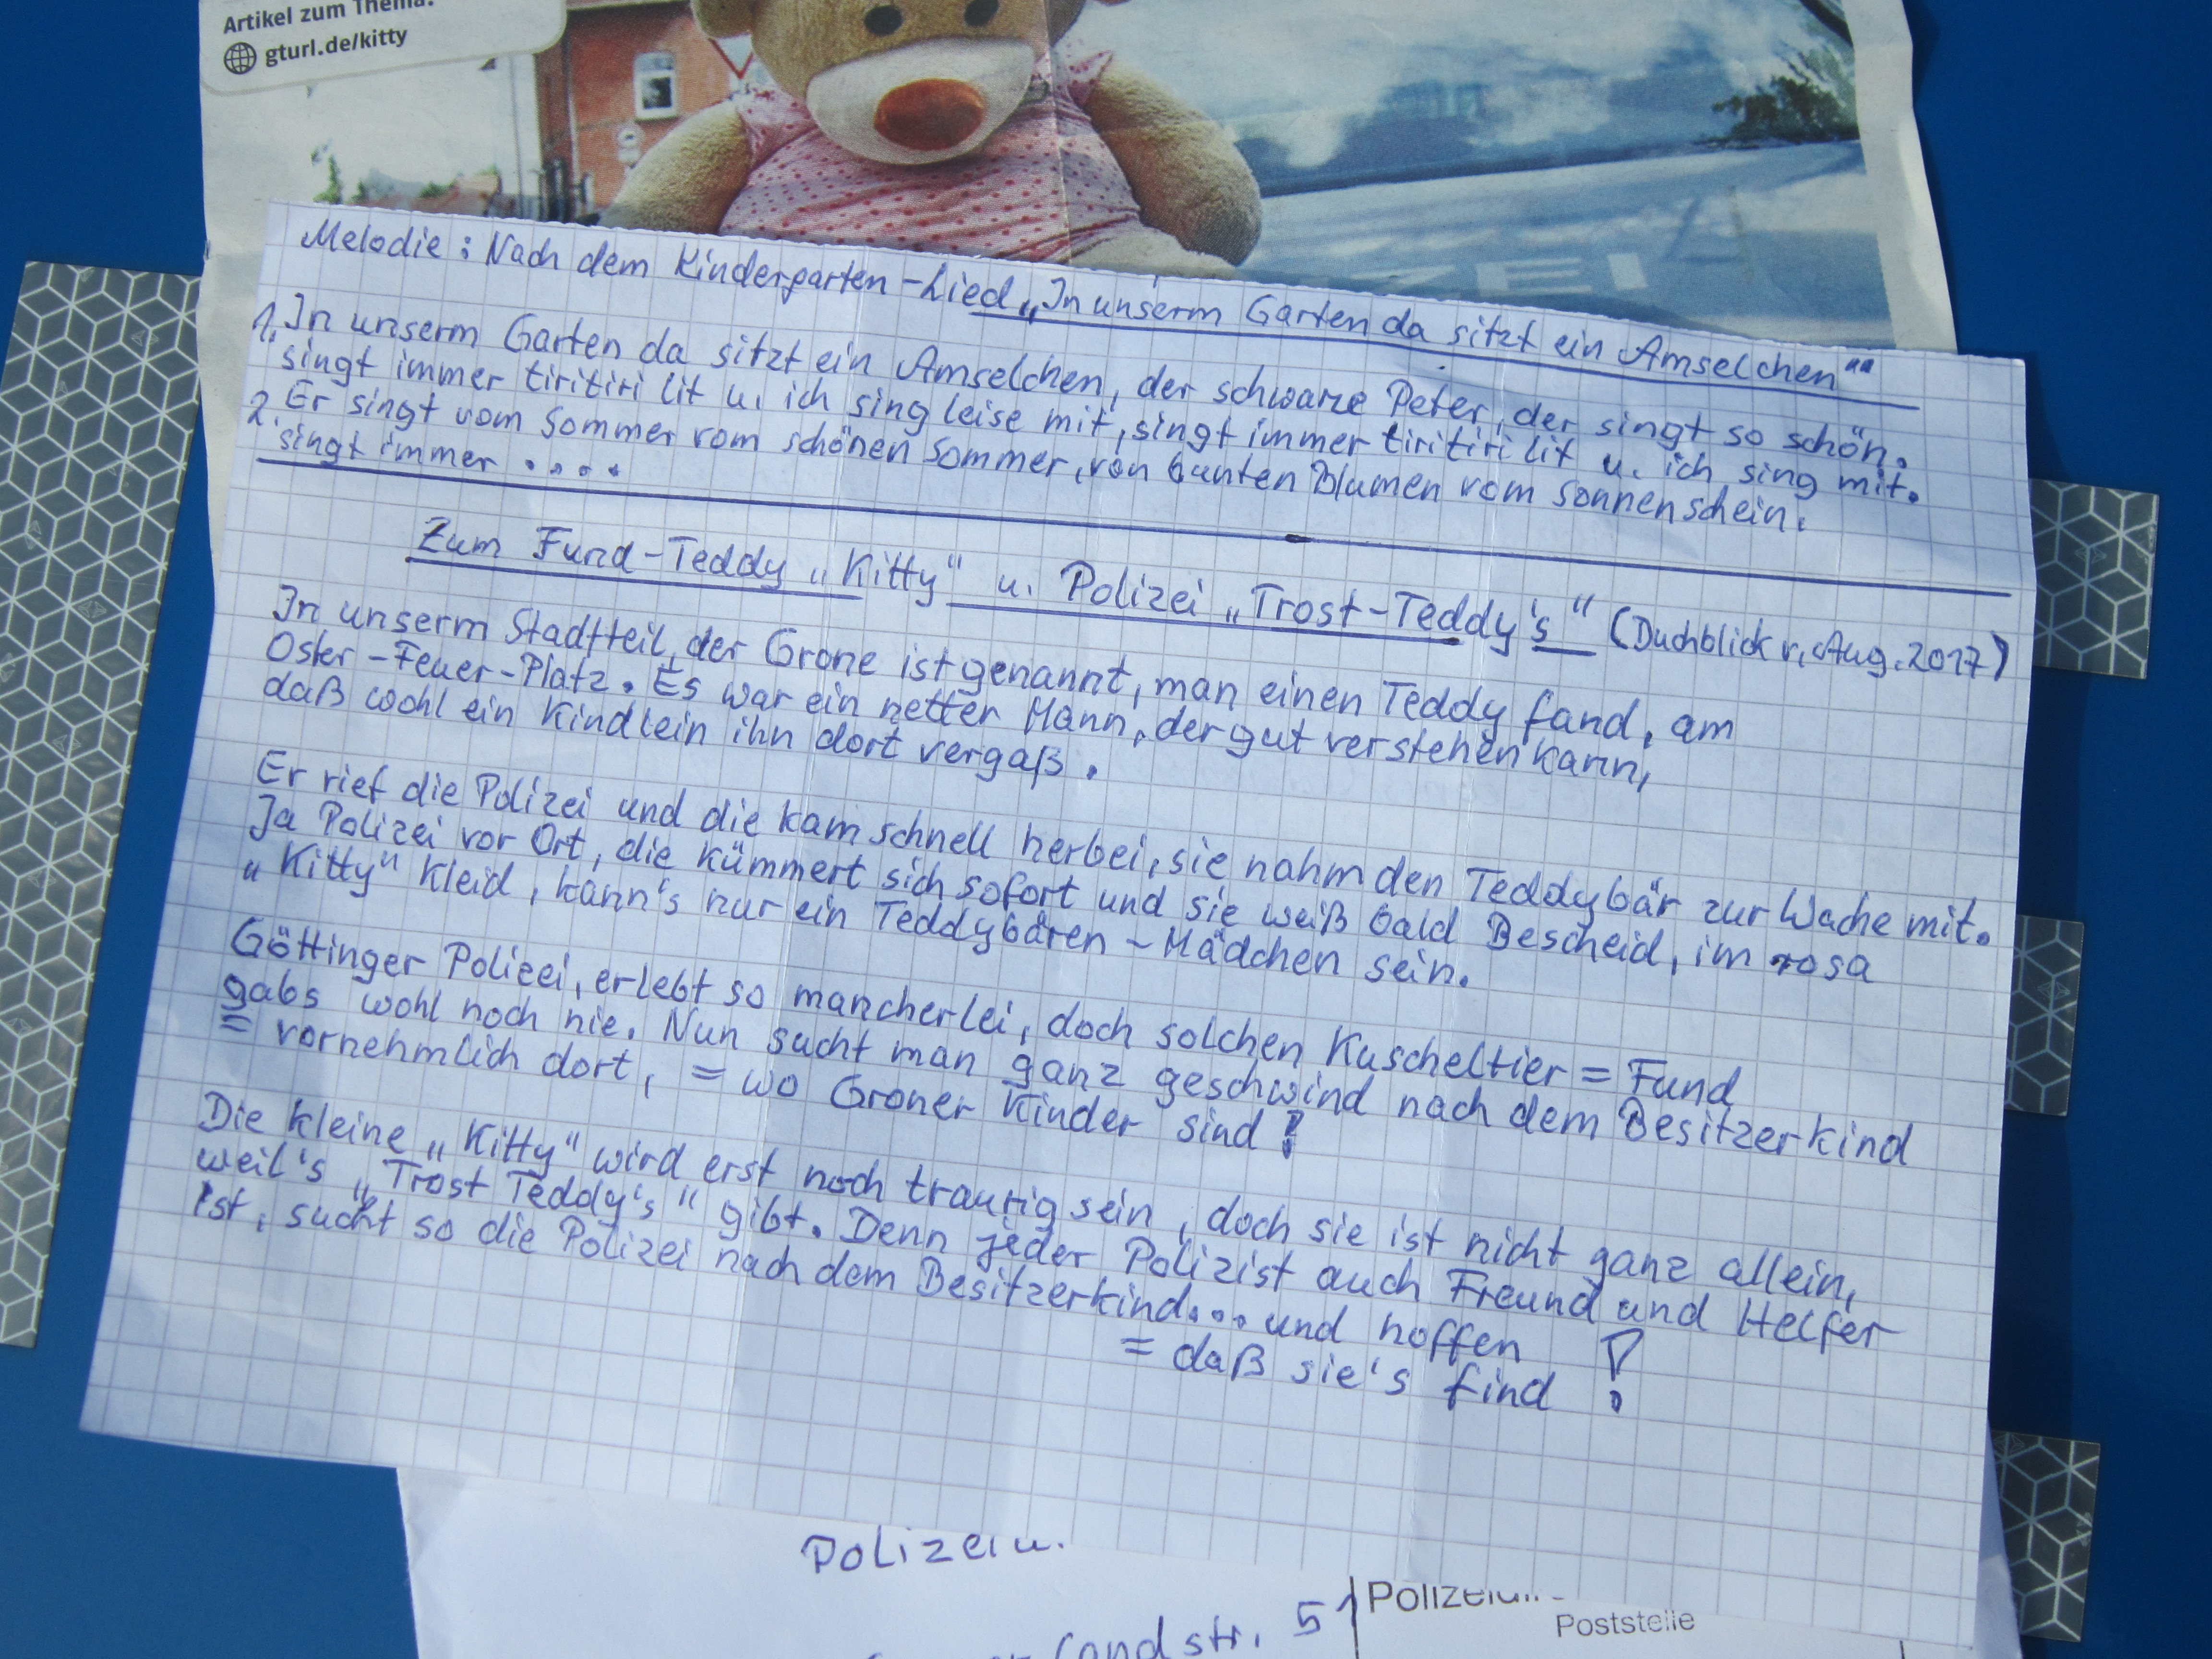 Artikel zum Thema:
gturl.de/kitty
ZEI
Melodie: Nach dem Kindergarten-Lied „In unserm Garten da sitzt ein Amselchen““
1. In unserm Garten da sitzt ein Amselchen, der schwarze Peter, der singt so schön.
singt immer tiritiri lit u. ich sing leise mit, singt immer tiritiri lit u. ich sing mit.
2. Er singt vom Sommer vom schönen Sommer, von bunten Blumen vom Sonnenschein.
singt immer ....
Zum Fund-Teddy „Kitty“ u. Polizei „Trost-Teddy's“ (Duchblick v. Aug. 2017)
In unserm Stadtteil, der Grone ist genannt, man einen Teddy fand, am
Oster-Feuer-Platz. Es war ein netter Mann, der gut verstehen kann,
daß wohl ein Kindlein ihn dort vergaß.
Er rief die Polizei und die kam schnell herbei, sie nahm den Teddybär zur Wache mit.
Ja Polizei vor Ort, die kümmert sich sofort und sie weiß bald Bescheid, im rosa
„Kitty“ Kleid, kann's nur ein Teddybären-Mädchen sein.
Göttinger Polizei, erlebt so mancherlei, doch solchen Kuscheltier = Fund
gabs wohl noch nie. Nun sucht man ganz geschwind nach dem Besitzerkind
= vornehmlich dort, = wo Groner Kinder sind!
Die kleine „Kitty“ wird erst noch traurig sein, doch sie ist nicht ganz allein,
weil's „Trost Teddy's“ gibt. Denn jeder Polizist auch Freund und Helfer
ist, sucht so die Polizei nach dem Besitzerkind... und hoffen
= daß sie's find !
Polizei u.
landstr. 51
Poststelle